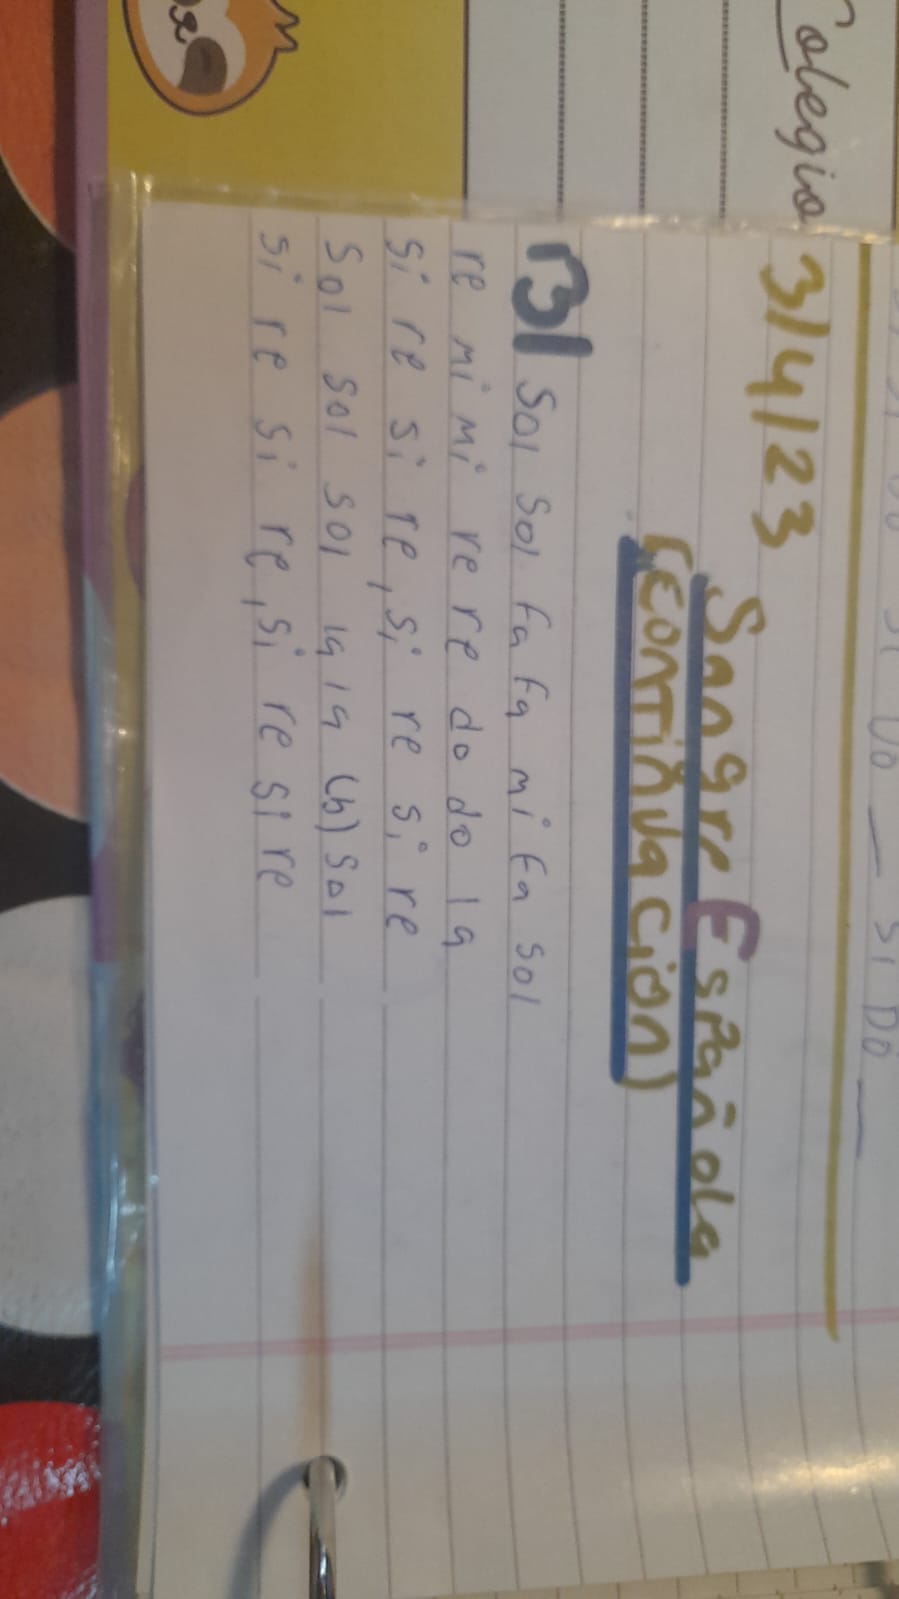 Si Do
Colegio
3/4/23
Sangre Española
(continuación)
B| Sol Sol fa fa mi fa sol
re mi mi re re do do la
si re si re, si re si re
Sol sol sol la la (b) sol
si re si re, si re si re